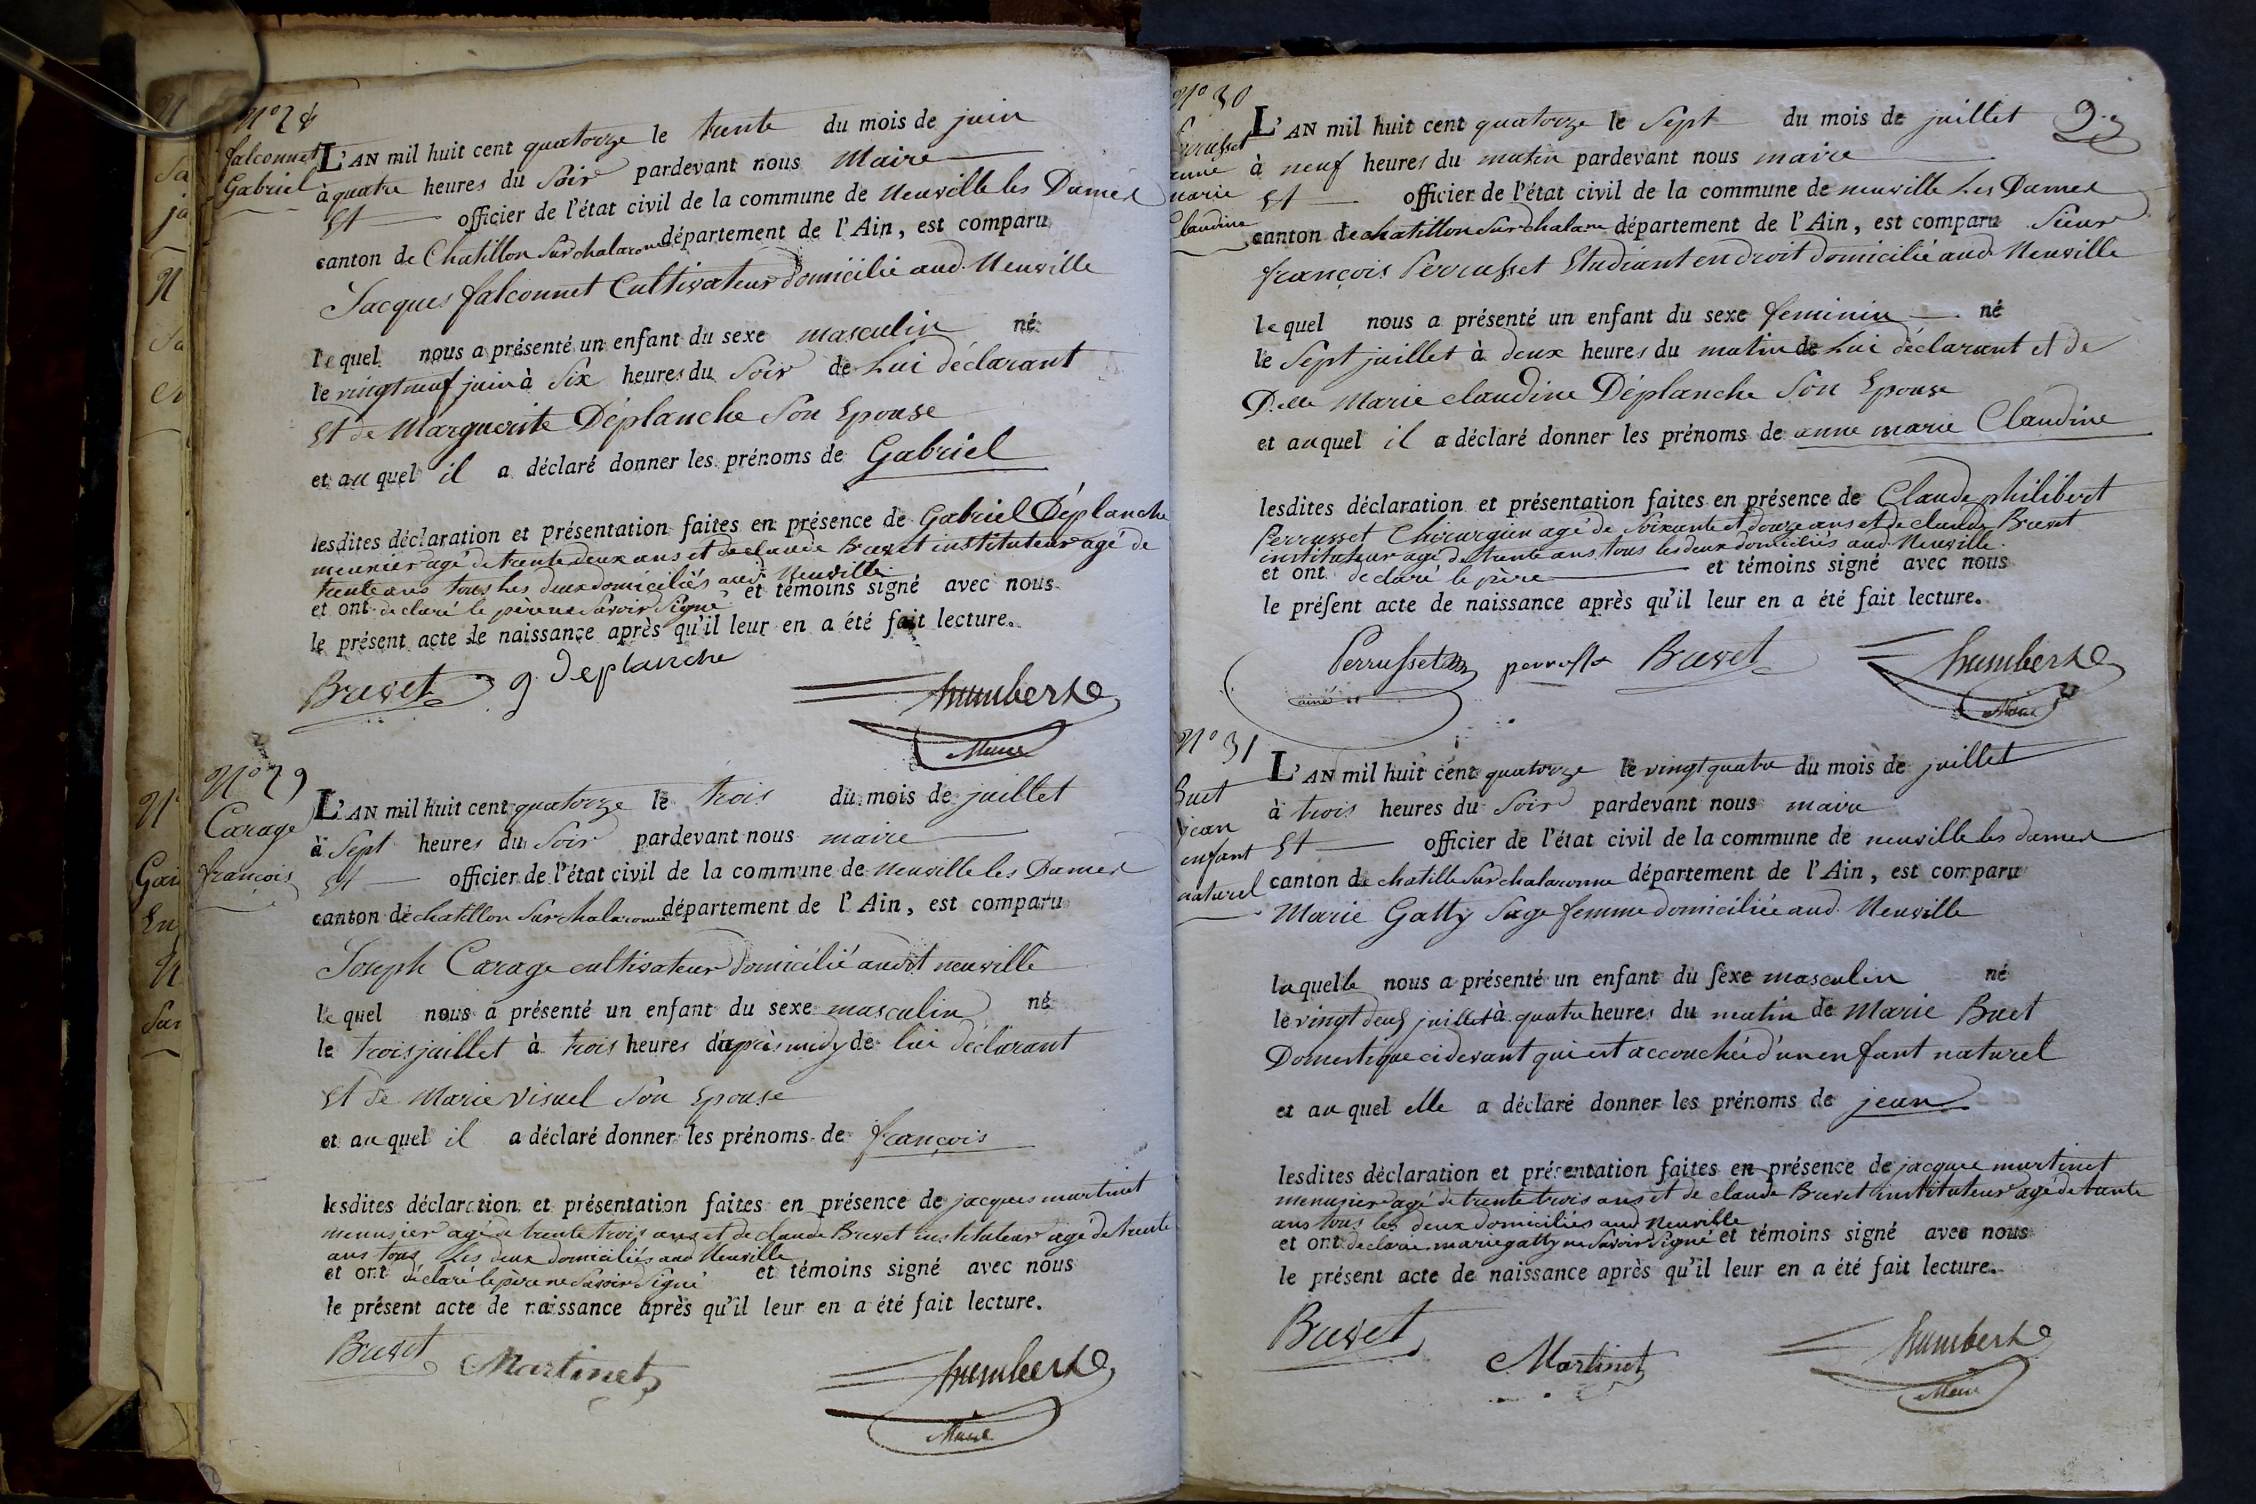 N° 28
falconnet
Gabriel
L'AN mil huit cent quatorze le trente du mois de juin
à quatre heures du Soir pardevant nous Maire
Et officier de l'état civil de la commune de Neuville les Dames
canton de Chatillon Sur chalaronne département de l'Ain, est comparu
Jacques falconnet Cultivateur domicilié aud. Neuville
lequel nous a présenté un enfant du sexe masculin né
le vingt neuf juin à Six heures du Soir de Lui déclarant
Et de Marguerite Déplanche Son Epouse
et auquel il a déclaré donner les prénoms de Gabriel
lesdites déclaration et présentation faites en présence de Gabriel Déplanche
meunier agé de trente deux ans et de claude Buvet instituteur agé de
trente ans tous les deux domiciliés aud. Neuville
et ont declaré le père ne Savoir Signé et témoins signé avec nous
le présent acte de naissance après qu'il leur en a été fait lecture.
Buvet g. Deplanche humbert
Maire
N° 29
Carage
françois
L'AN mil huit cent quatorze le trois du mois de juillet
à Sept heures du Soir pardevant nous maire
Et officier de l'état civil de la commune de Neuville les Dames
canton de chatillon Sur chalaronne département de l'Ain, est comparu
Joseph Carage cultivateur domicilié audit neuville
lequel nous a présenté un enfant du sexe masculin né
le trois juillet à trois heures d'après midy de lui déclarant
Et de Marie Visuel Son Epouse
et auquel il a déclaré donner les prénoms de françois
lesdites déclaration et présentation faites en présence de jacques martinet
menusier agé de trente trois ans et de claude Buvet instituteur agé de trente
ans tous les deux domiciliés aud Neuville
et ont déclaré le père ne Savoir Signé et témoins signé avec nous
le présent acte de naissance après qu'il leur en a été fait lecture.
Buvet Martinet humbert
Maire
N° 30
Perrusset
anne
marie
Claudine
L'AN mil huit cent quatorze le Sept du mois de juillet
à neuf heures du matin pardevant nous maire
Et officier de l'état civil de la commune de neuville Les Dames
canton de chatillon Sur chalarone département de l'Ain, est comparu Sieur
françois Perrusset Etudiant en droit domicilié aud Neuville
lequel nous a présenté un enfant du sexe feminin né
le Sept juillet à deux heures du matin de Lui déclarant et de
D.elle Marie claudine Déplanche Son Epouse
et auquel il a déclaré donner les prénoms de anne marie Claudine
lesdites déclaration et présentation faites en présence de Claude philibert
Perrusset Chirurgien agé de Soixante et douze ans et de claude Buvet
instituteur agé de trente ans tous les deux domiciliés aud. Neuville.
et ont declaré le père et témoins signé avec nous
le présent acte de naissance après qu'il leur en a été fait lecture.
Perrusset perrusset Buvet humbert
ainé Maire
N° 31
Buet
jean
enfant
naturel
L'AN mil huit cent quatorze le vingt quatre du mois de juillet
à trois heures du Soir pardevant nous maire
Et officier de l'état civil de la commune de neuville les dames
canton de chatille Sur chalaronne département de l'Ain, est comparu
Marie Gatty Sage femme domiciliée aud. Neuville
laquelle nous a présenté un enfant du sexe masculin né
le vingt deux juillet à quatre heures du matin de Marie Buet
Domestique cidevant qui est accouchée d'un enfant naturel
et auquel elle a déclaré donner les prénoms de jean
lesdites déclaration et présentation faites en présence de jacque martinet
menusier agé de trente trois ans et de claude Buvet instituteur agé de trante
ans tous les deux domiciliés aud Neuville
et ont declarée marie gatty ne Savoir Signé et témoins signé avec nous
le présent acte de naissance après qu'il leur en a été fait lecture.
Buvet Martinet humbert
Maire